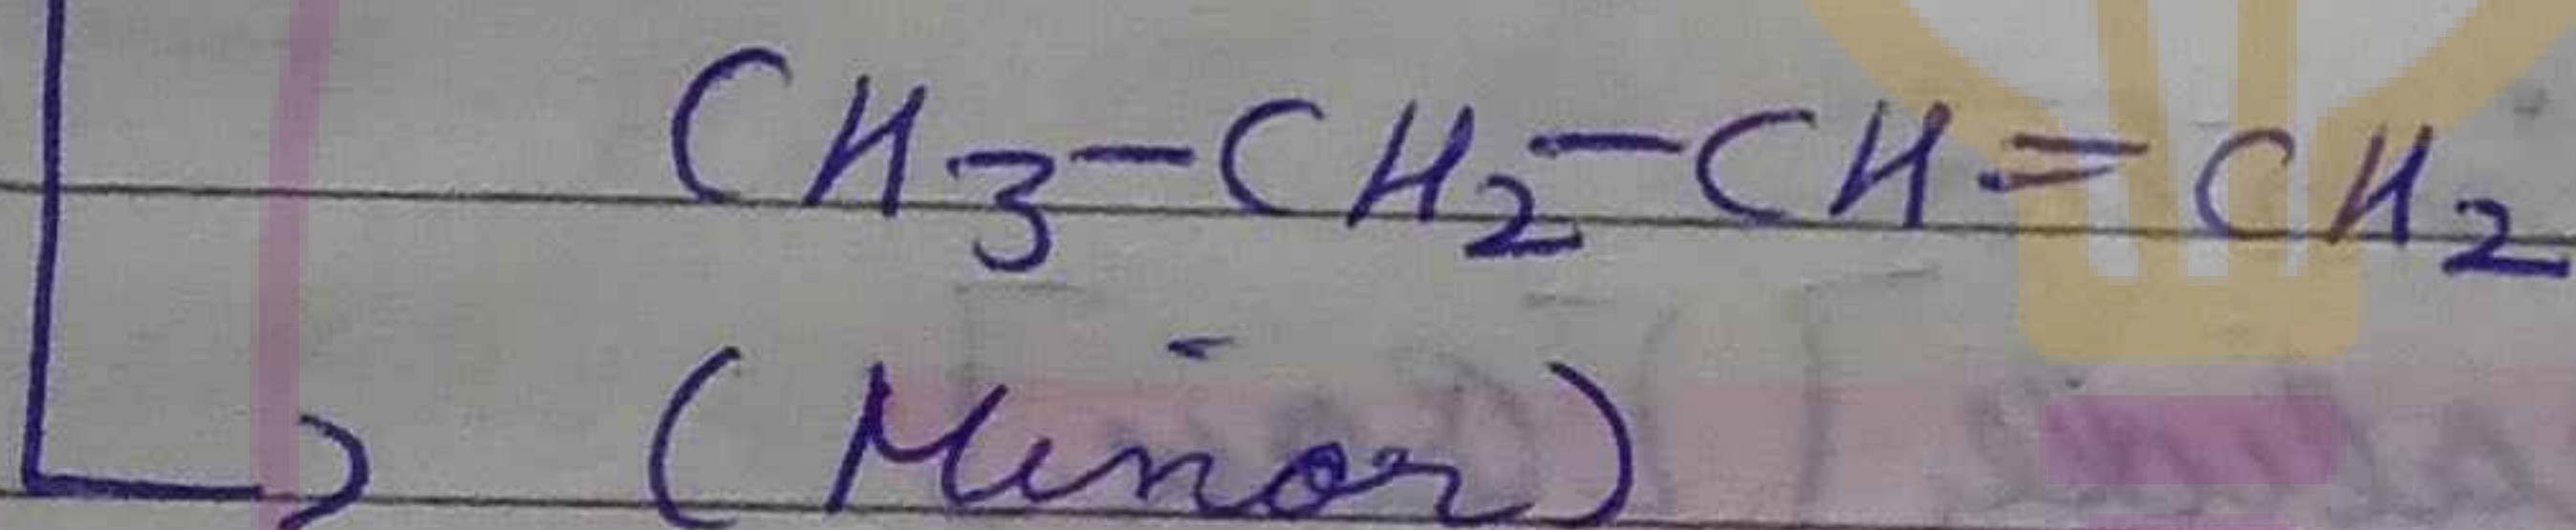 CH₃-CH₂-CH=CH₂
(Minor)